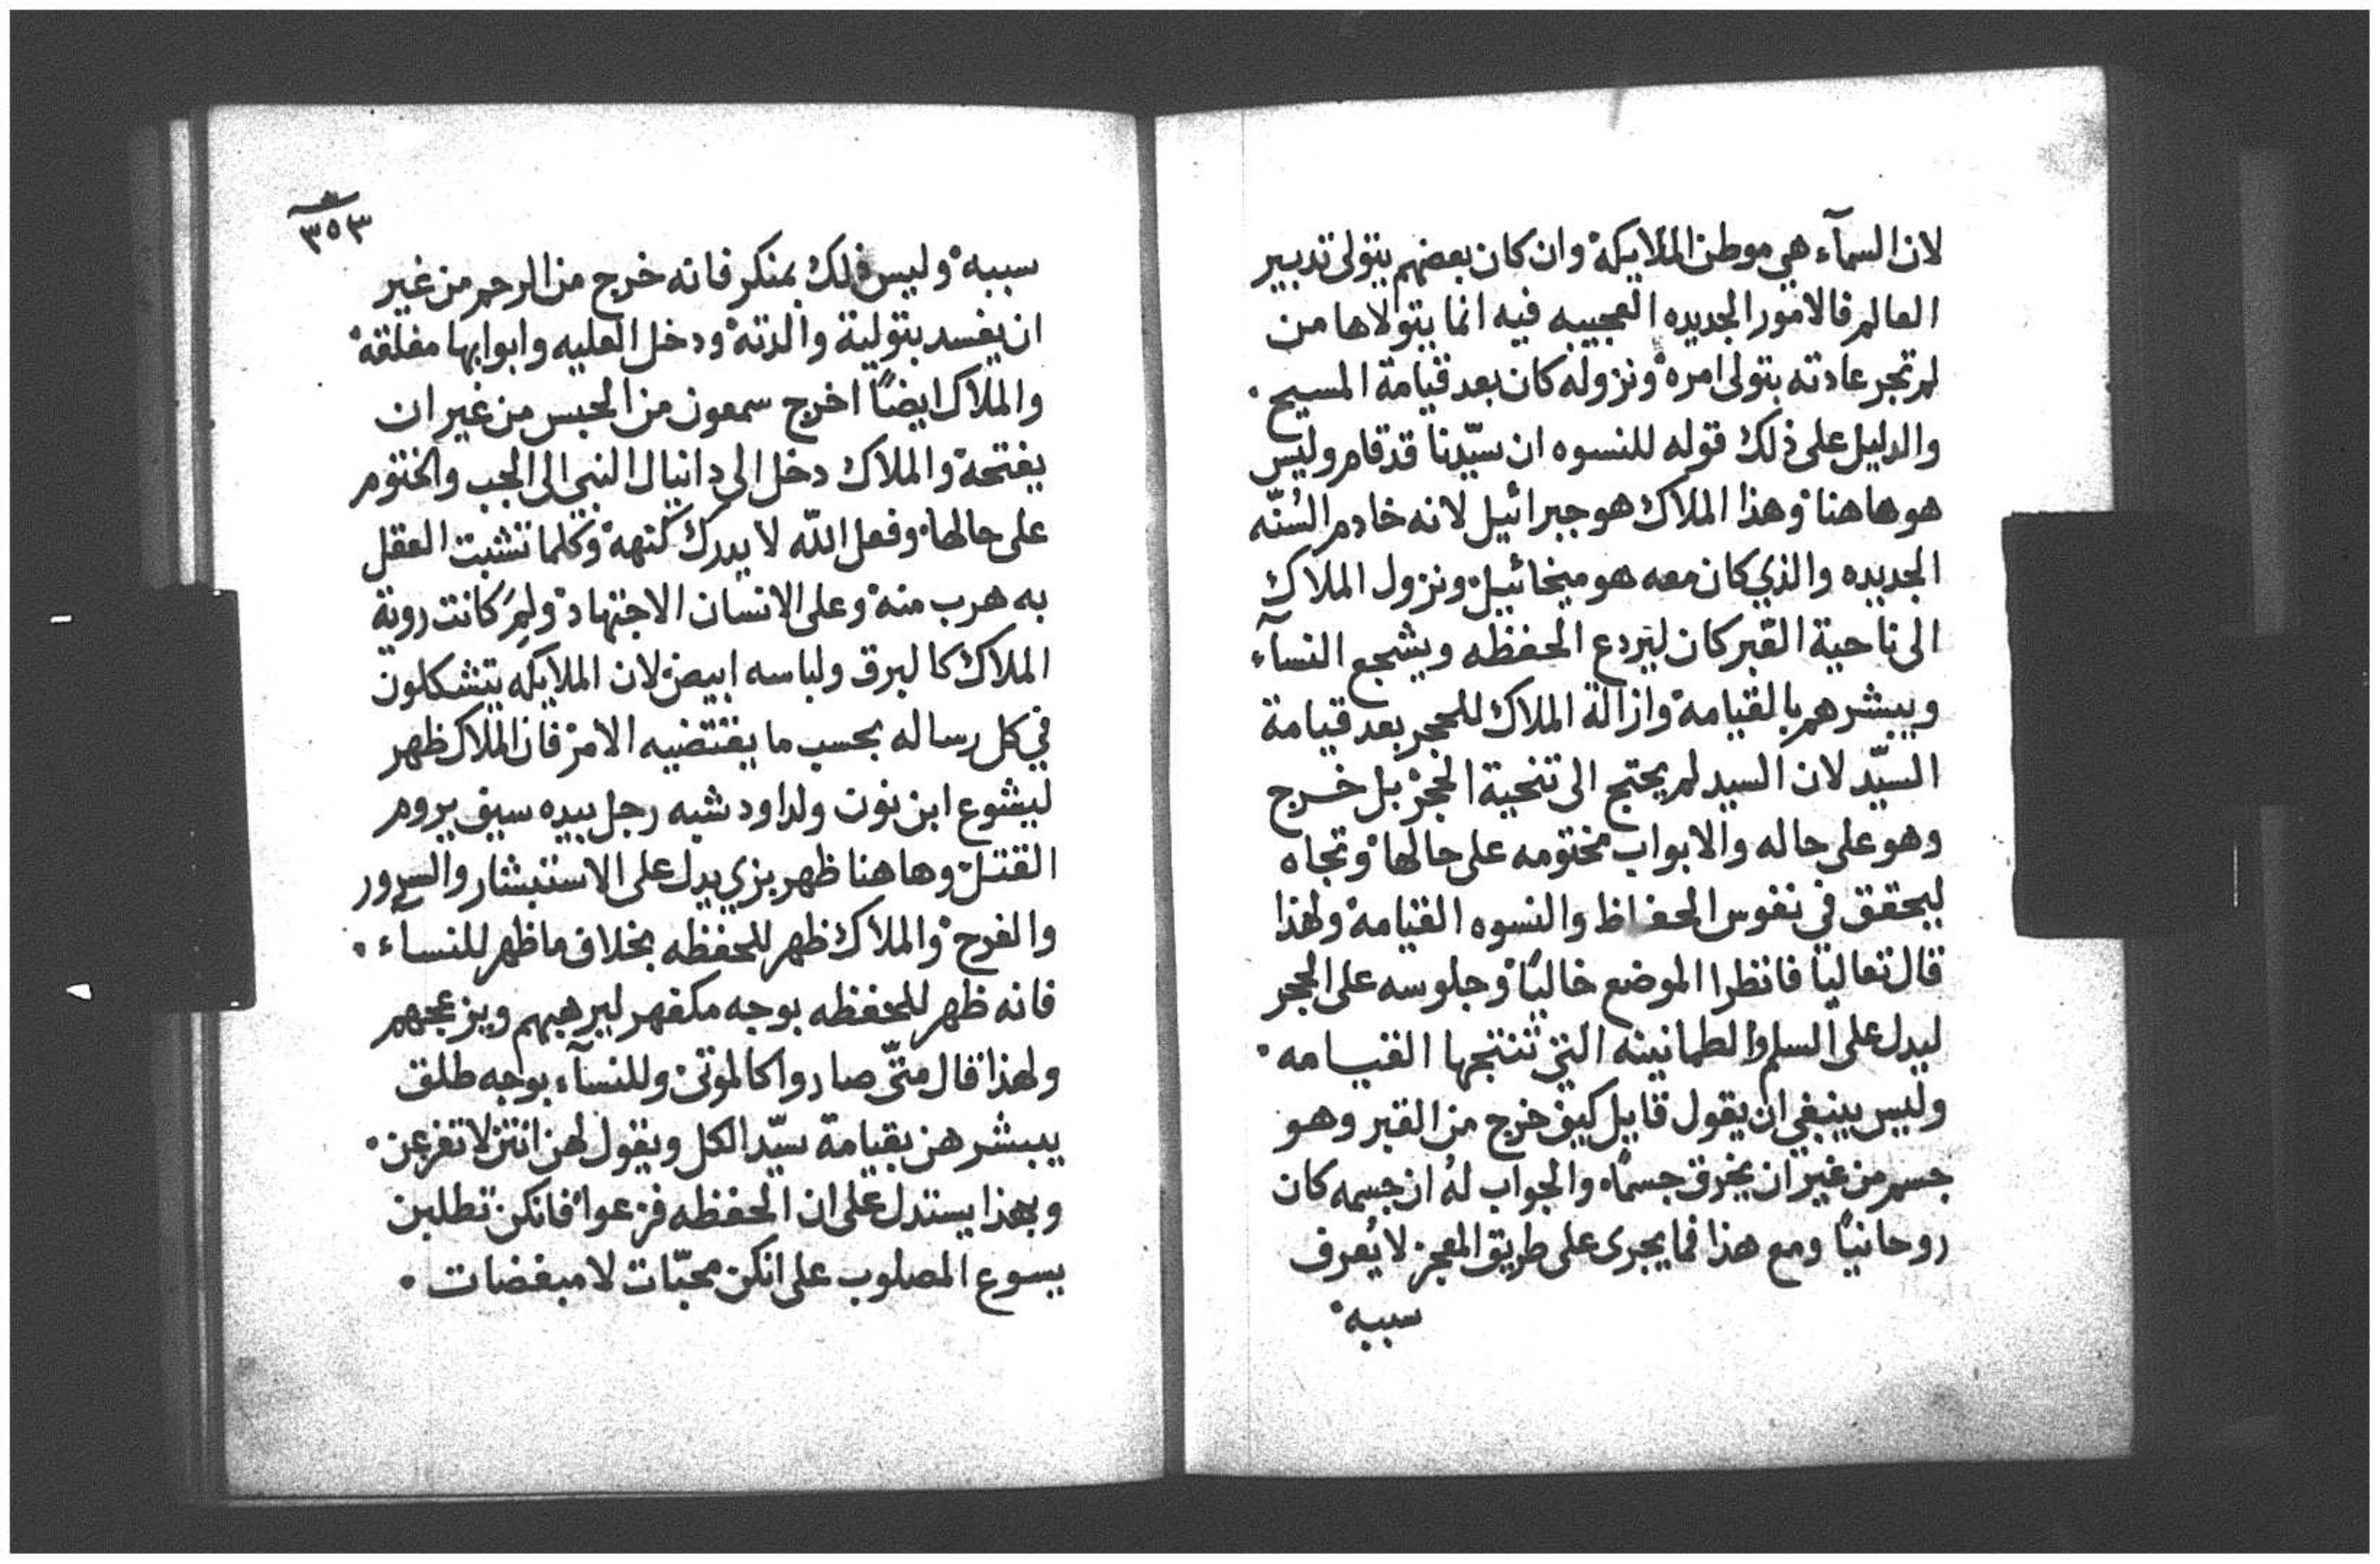 لان السمآء هي موطن الملايكة وان كان بعضهم يتولى تدبير
العالم فالامور الجديده العجيبه فيه انما يتولاها من
لم تجر عادته بتولى امره ونزوله كان بعد قيامة المسيح.
والدليل على ذلك قوله للنسوه ان سيّدنا قد قام وليس
هو هاهنا وهذا الملاك هو جبرائيل لانه خادم السُنّه
الجديده والذي كان معه هو ميخائيل ونزول الملاك
الى ناحية القبر كان ليردع الحفظه ويشجع النسآء
ويبشرهم بالقيامة وازالة الملاك للحجر بعد قيامة
السيّد لان السيد لم يحتج الى تنحية الحجر بل خرج
وهو على حاله والابواب مختومه على حالها وتجاه
ليحقق في نفوس الحفاظ والنسوه القيامة ولهذا
قال تعاليا فانظرا الموضع خاليًا وجلوسه على الحجر
ليدل على السلم والطمانينه التي تنتجها القيامه.
وليس ينبغي ان يقول قايل كيف خرج من القبر وهو
جسم من غير ان يخرق جسمًا والجواب لهُ ان جسمه كان
روحانيًا ومع هذا فما يجرى على طريق المعجز لا يُعرف
سببه
٣٥٣
سببه وليس ذلك بمنكر فانه خرج من الرحم من غير
ان يفسد بتولية والدته ودخل العليه وابوابها مغلقه
والملاك ايضًا اخرج سمعون من الحبس من غير ان
يفتحه والملاك دخل الى دانيال النبي الى الجب والختوم
على حالها وفعل اللّه لا يدرك كنهه وكلما تشبت العقل
به هرب منه وعلى الانسان الاجتهاد ولِمَ كانت روية
الملاك كالبرق ولباسه ابيض لان الملايكه يتشكلون
في كل رساله بحسب ما يقتضيه الامر فان الملاك ظهر
ليشوع ابن نون ولداود شبه رجل بيده سيف يروم
القتل وهاهنا ظهر بزي يدل على الاستبشار والسرور
والفرح والملاك ظهر للحفظه بخلاف ما ظهر للنسآء.
فانه ظهر للحفظه بوجه مكفهر ليرهبهم ويزعجهم
ولهذا قال متّى صاروا كالموتى وللنسآء بوجه طلق
يبشرهن بقيامة سيّد الكل ويقول لهن انتن لا تفزعن.
وبهذا يستدل على ان الحفظه فزعوا فانكن تطلبن
يسوع المصلوب على انكن محبّات لا مبغضات.